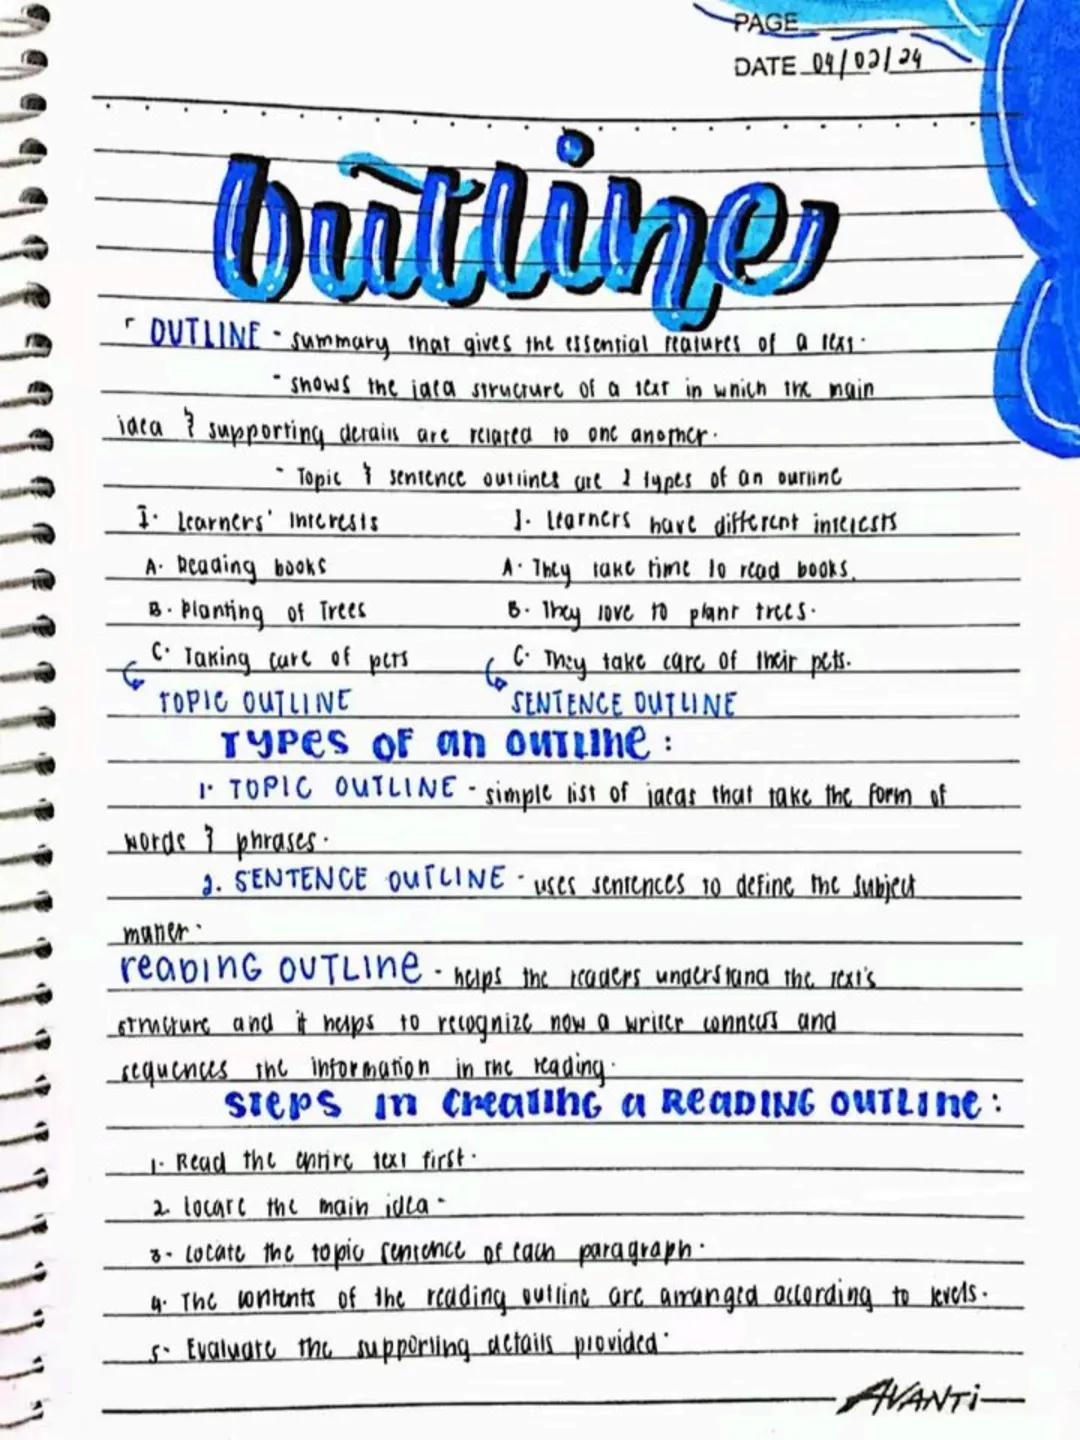 PAGE
DATE 04/02/24
Outline
OUTLINE - summary that gives the essential features of a text.
- shows the idea structure of a text in which the main
idea & supporting details are related to one another.
- Topic & sentence outlines are 2 types of an outline
I. Learners' Interests
I. Learners have different interests
A. Reading books
A. They take time to read books.
B. Planting of Trees
B. They love to plant trees.
C. Taking care of pets
C. They take care of their pets.
TOPIC OUTLINE
SENTENCE OUTLINE
TYPES OF an OUTLINE :
1. TOPIC OUTLINE - simple list of ideas that take the form of
words & phrases.
2. SENTENCE OUTLINE - uses sentences to define the subject
matter.
reading OUTLINE - helps the readers understand the text's
structure and it helps to recognize how a writer connects and
sequences the information in the reading.
STEPS in Creating a READING OUTLINE :
1. Read the entire text first.
2. Locate the main idea.
3. Locate the topic sentence of each paragraph.
4. The contents of the reading outline are arranged according to levels.
5. Evaluate the supporting details provided.
AVANTi